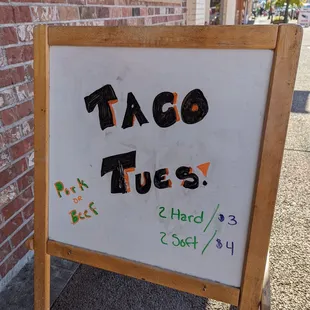 TACO
TUES!
Pork
or
Beef
2 Hard / $3
2 Soft / $4